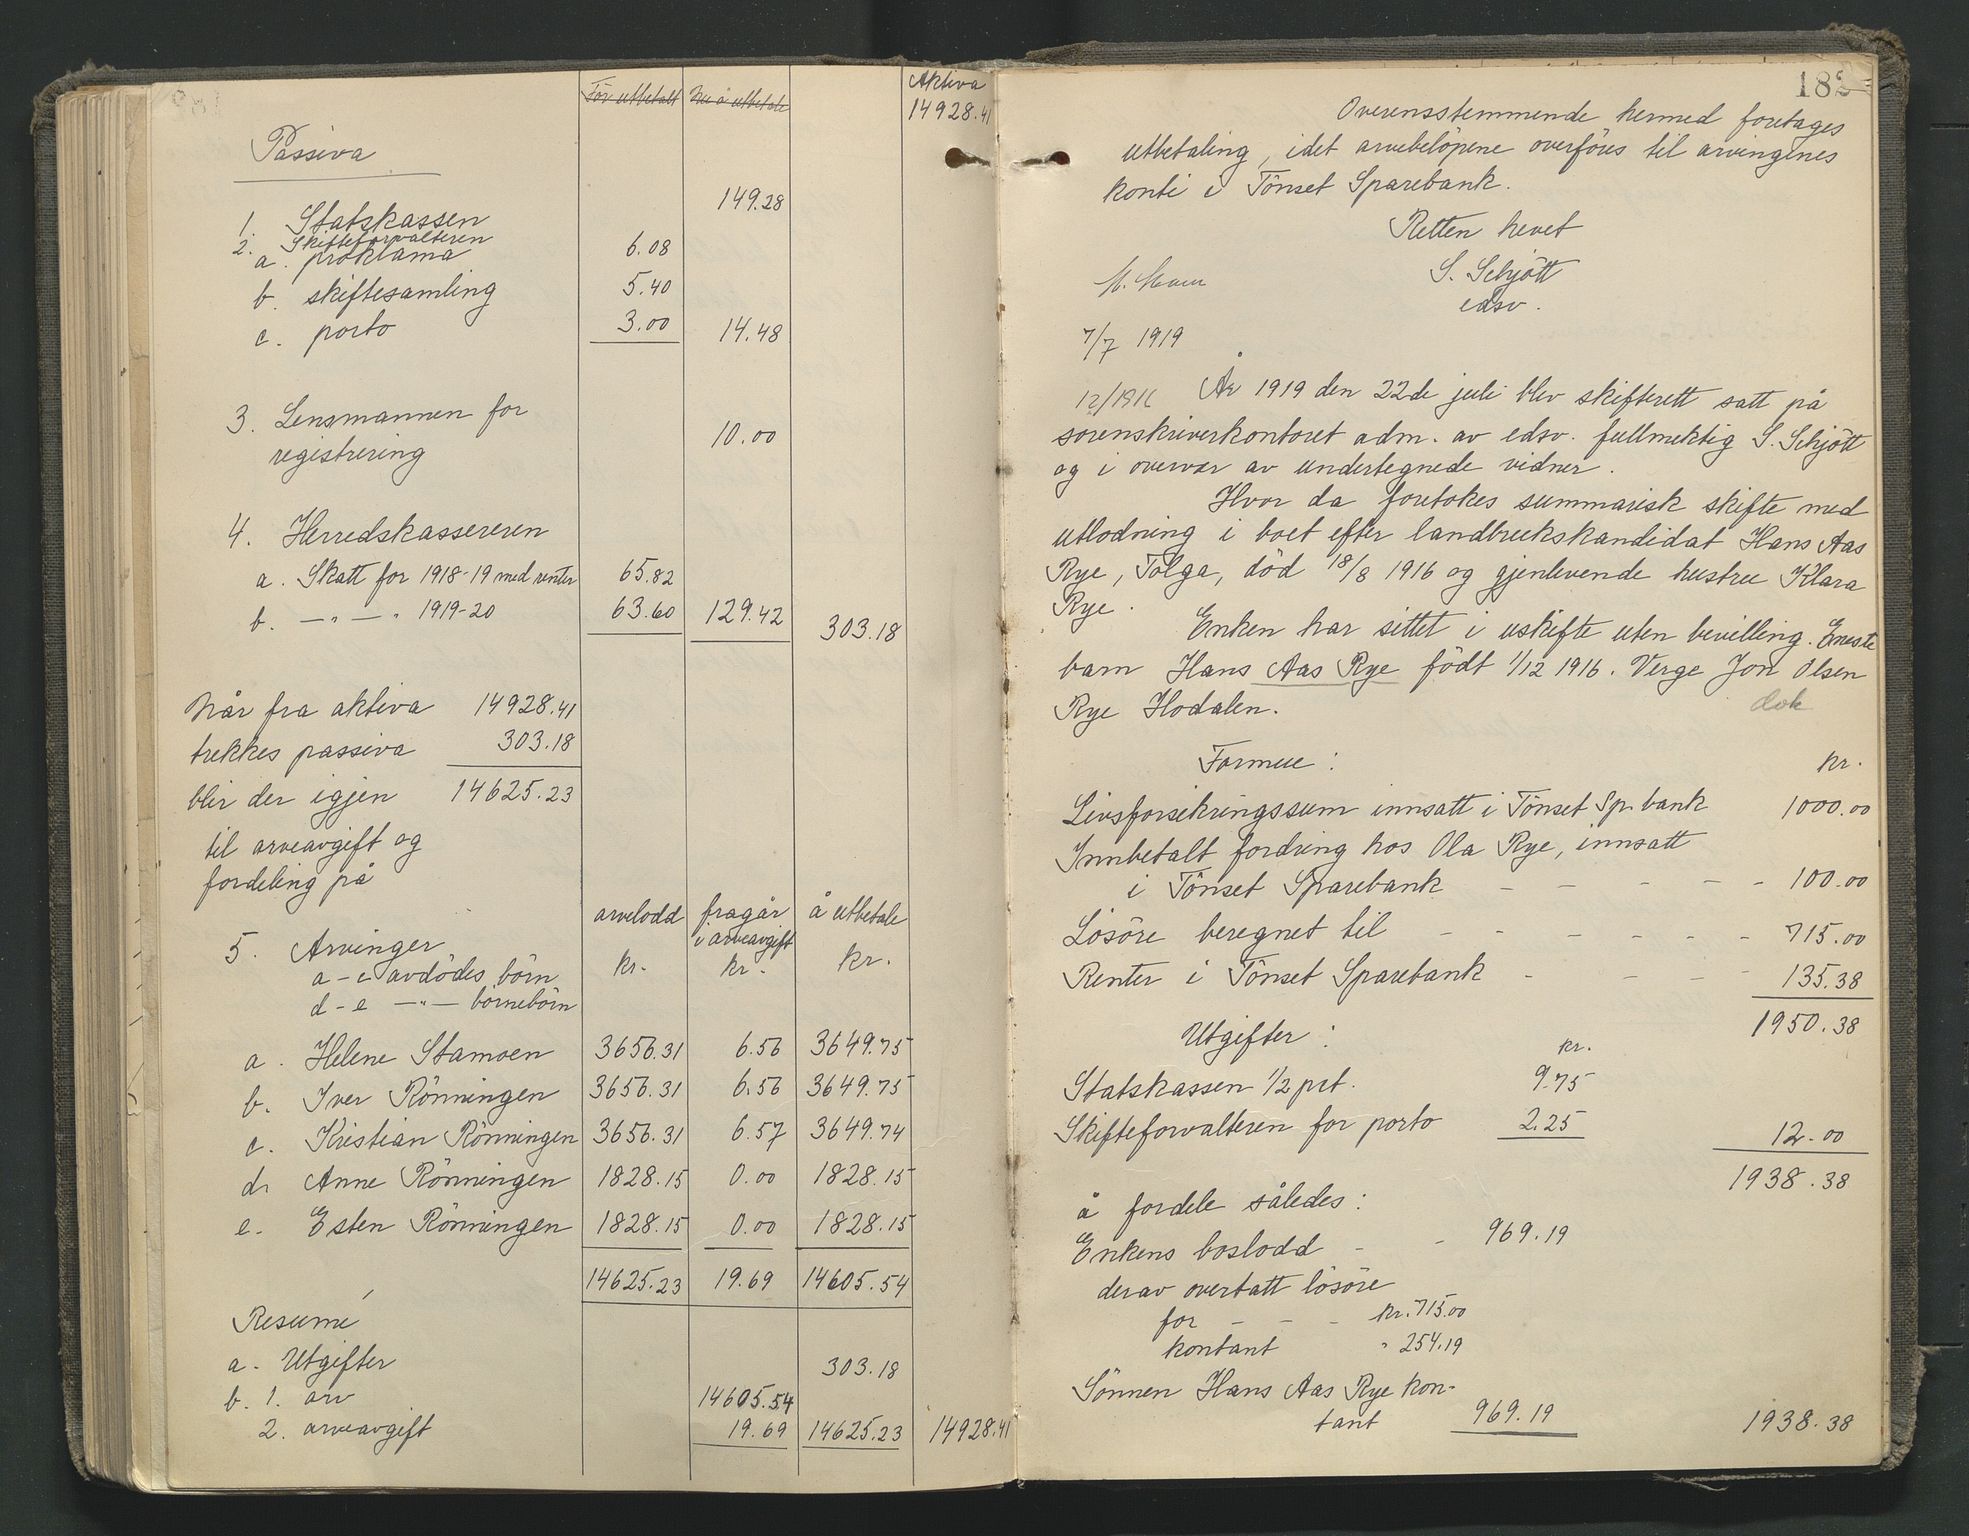 För utbetalt Nu å utbetale Aktiva
14928.41
Passiva
1. Statskassen 149.28
2. Skifteforvalteren
a. proklama 6.08
b. skiftesamling 5.40
c. porto 3.00 14.48
3. Lensmannen for
registrering 10.00
4. Herredskassereren
a. Skatt for 1918-19 med renter 65.82
b. —"—" 1919-20 63.60 129.42 303.18
Når fra aktiva 14928.41
trekkes passiva 303.18
blir der igjen 14625.23
til arveavgift og
fordeling på
arvelodd fragår å utbetale
i arveavgift
5. Arvinger
kr. kr. kr.
a-c avdödes börn
d-e —"— börnebörn
a. Helene Stamoen 3656.31 6.56 3649.75
b. Iver Rönningen 3656.31 6.56 3649.75
c. Kristian Rönningen 3656.31 6.57 3649.74
d. Anne Rönningen 1828.15 0.00 1828.15
e. Esten Rönningen 1828.15 0.00 1828.15
14625.23 19.69 14605.54
Resumé
a. Utgifter 303.18
b. 1. arv 14605.54
2. arveavgift 19.69 14625.23 14928.41
182
Overensstemmende hermed foretages
utbetaling, idet arvebelöpene overföres til arvingenes
konti i Tönset Sparebank.
Retten hevet
S. Schjött
edsv.
7/7 1919
12/1916 År 1919 den 22de juli blev skifterett satt på
sorenskriverkontoret adm. av edsv. fullmektig S. Schjött
og i overvær av undertegnede vidner.
Hvor da foretokes summarisk skifte med
utlodning i boet efter landbrukskandidat Hans Aas
Rye, Tolga, död 18/8 1916 og gjenlevende hustru Klara
Rye.
Enken har sittet i uskifte uten bevilling. Eneste
barn Hans Aas Rye födt 1/12 1916. Verge Jon Olsen
Rye Hodalen. dok
Formue: kr.
Livsforsikringssum innsatt i Tönset Sp.bank 1000.00
Innbetalt fordring hos Ola Rye, innsatt
i Tönset Sparebank – – – – – 100.00
Lösöre beregnet til – – – – – – 715.00
Renter i Tönset Sparebank – – – – 135.38
1950.38
Utgifter: kr.
Statskassen 1/2 pct. 9.75
Skifteforvalteren for porto 2.25 12.00
1938.38
å fordele således:
Enkens boslodd – – 969.19
derav overtatt lösöre
for – – – kr. 715.00
kontant " 254.19
Sönnen Hans Aas Rye kon-
tant 969.19 1938.38